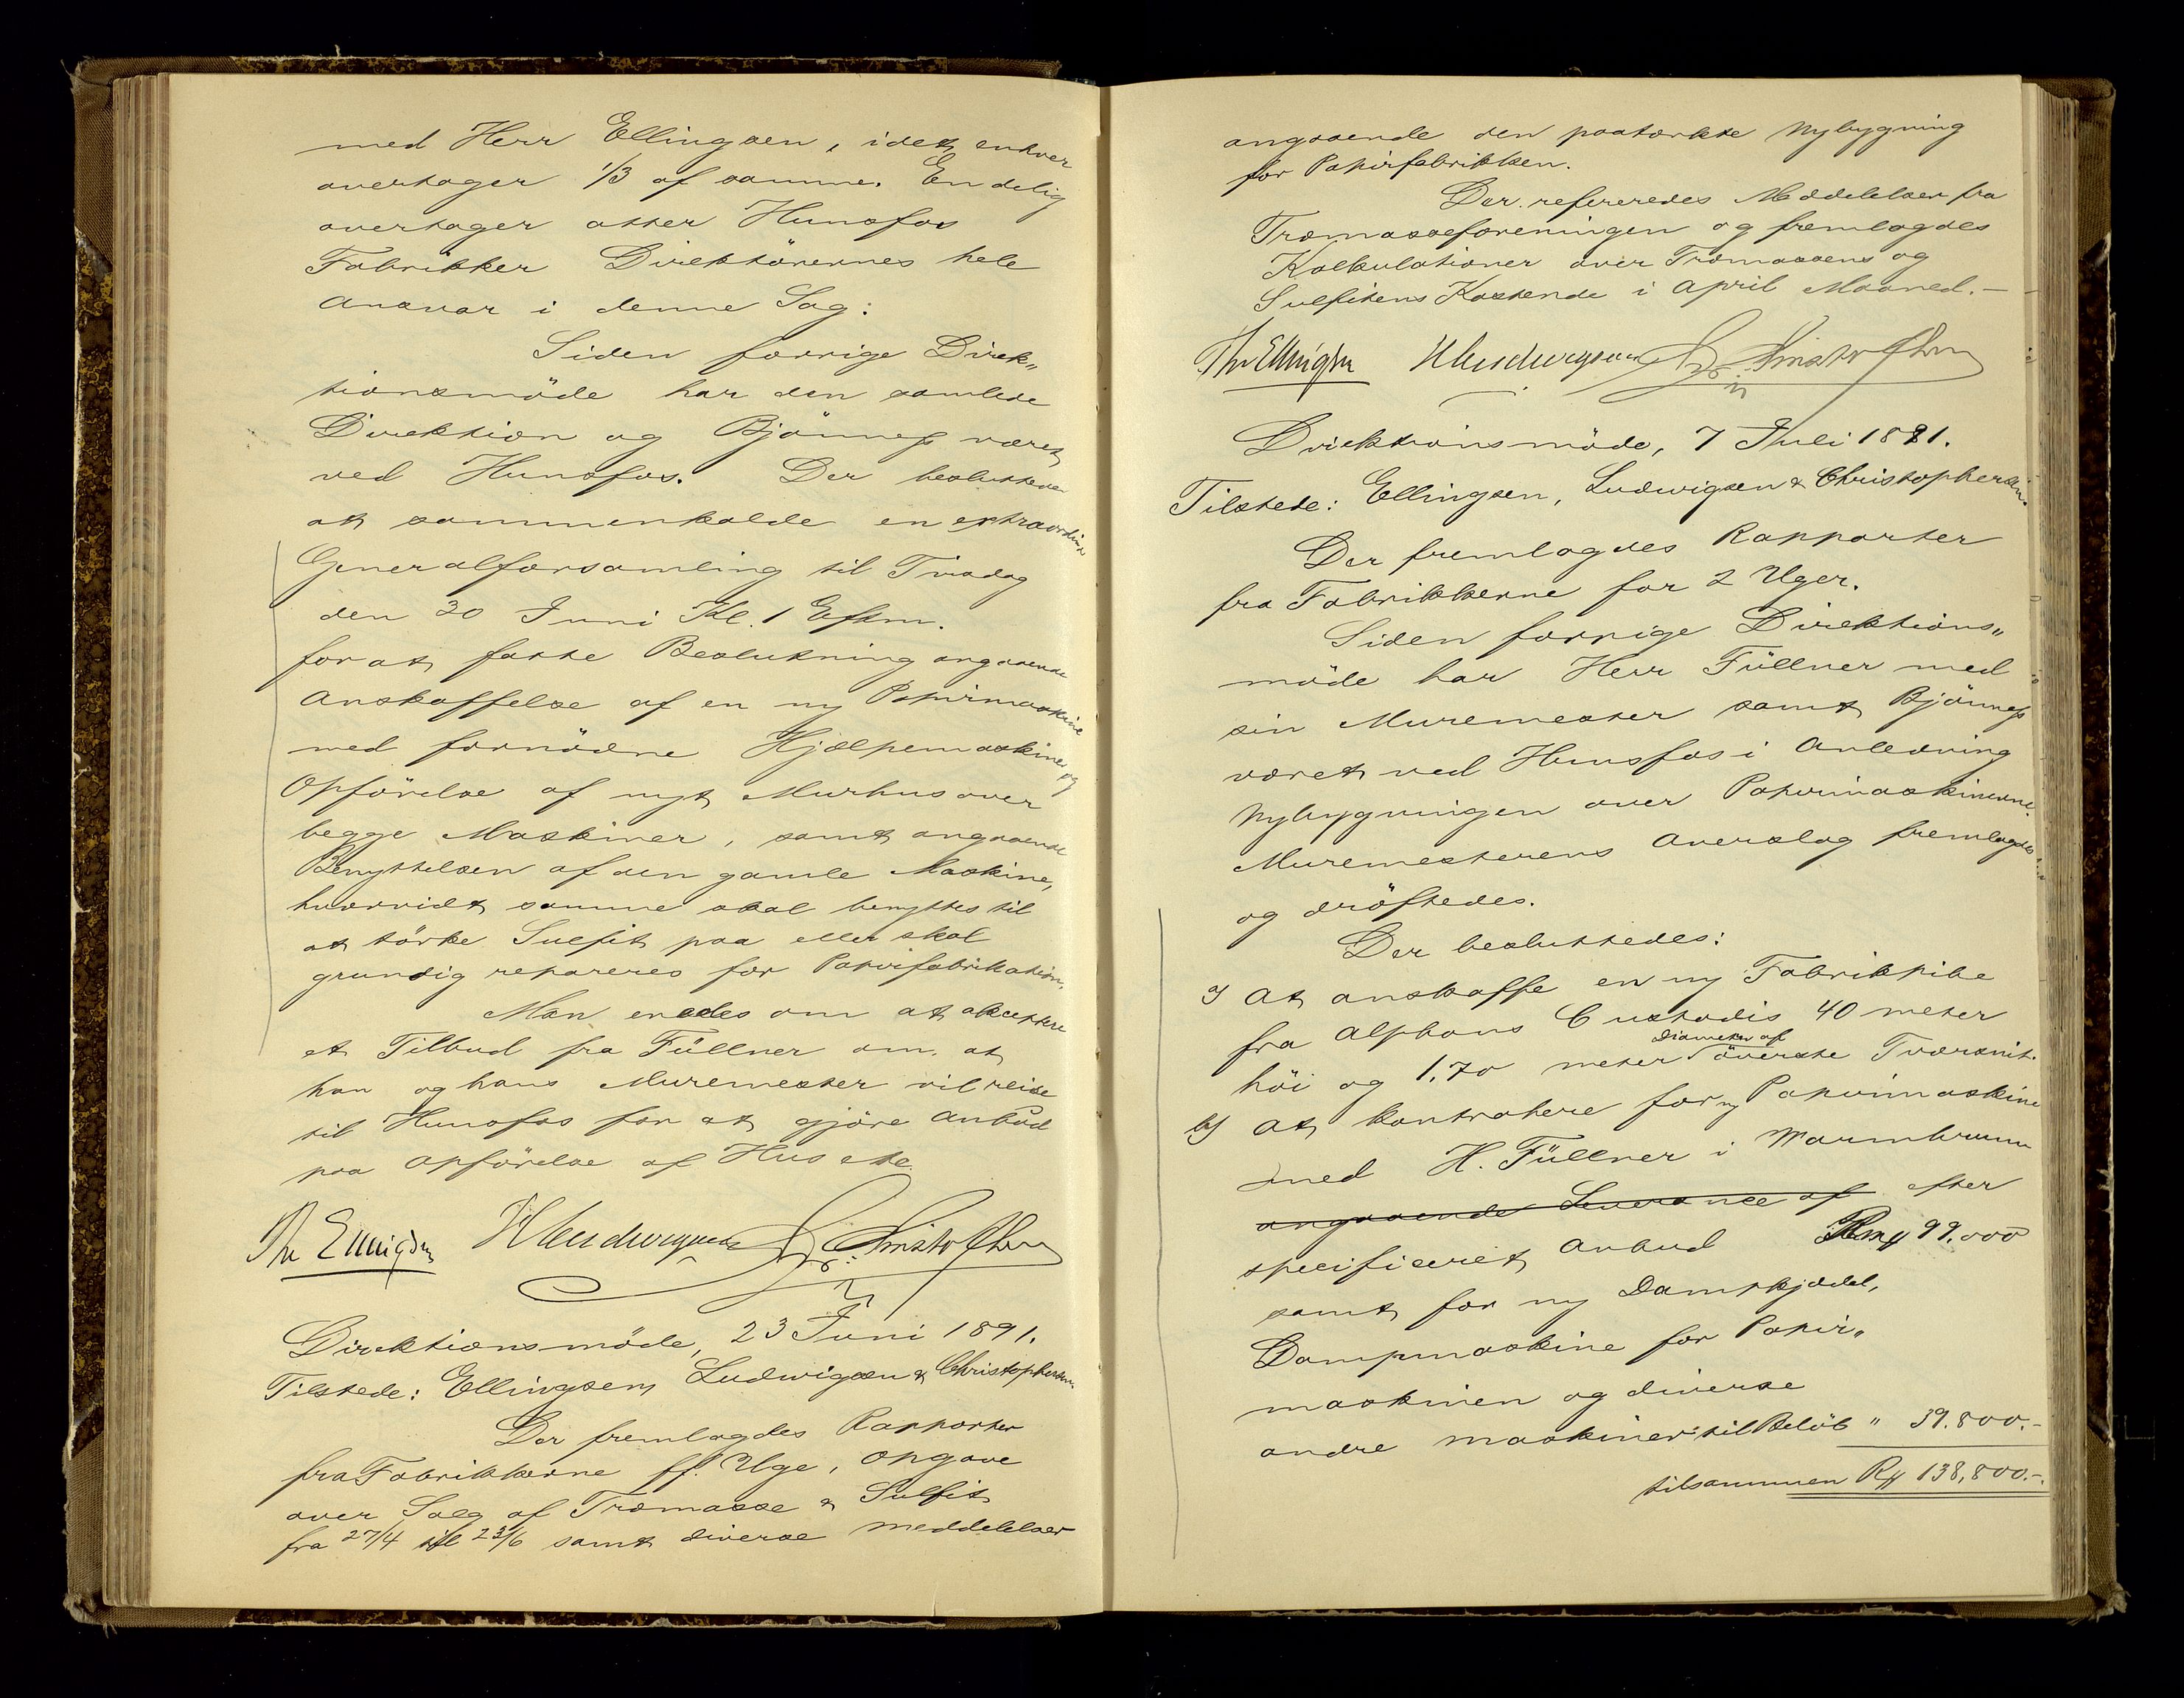 med Herr Ellingsen, idet enhver
overtager 1/3 af samme. Endelig
overtager atter Hunsfos
Fabrikker Direktörernes hele
Ansvar i denne Sag:
Siden forrige Direk„
tionsmöde har den samlede
Direktion og Bjönness været
ved Hunsfos. Der besluttedes
at sammenkalde en extraordinær
Generalforsamling til Tirsdag
den 30 Juni Kl. 1 Eftm.
for at fatte Beslutning angaaende
Anskaffelse af en ny Papirmaskine
med fornödne Hjælpemaskiner og
Opförelse af nyt Murhus over
begge Maskiner, samt angaaende
Benyttelsen af den gamle Maskine,
hvorvidt samme skal benyttes til
at törke Sulfit paa eller skal
grundig repareres for Papirfabrikation.
Man enedes om at akceptere
et Tilbud fra Füllner om at
han og hans Muremester vil reise
til Hunsfos for at gjöre Anbud
paa Opförelse af Hus etc.
Th Ellingsen HLudwigsen Chr. Christophersen
Direktionsmöde, 23 Juni 1891.
Tilstede: Ellingsen, Ludwigsen & Christophersen
Der fremlagdes Rapporter
fra Fabrikkerne ff. Uge, Opgave
over Salg af Træmasse & Sulfit
fra 27/4 til 23/6 samt diverse Meddelelser
angaaende den paatænkte Nybygning
for Papirfabrikken.
Der refereredes Meddelelser fra
Træmasseforeningen og fremlagdes
Kalkulationer over Træmassens og
Sulfitens Kostende i April Maaned. —
Th Ellingsen HLudwigsen Chr. Christophersen
Direktionsmöde, 7 Juli 1891.
Tilstede: Ellingsen, Ludwigsen & Christophersen.
Der fremlagdes Rapporter
fra Fabrikkerne for 2 Uger.
Siden forrige Direktions„
möde har Herr Füllner med
sin Muremester samt Bjönness
været ved Hunsfos i Anledning
Nybygningen over Papirmaskinerne.
Muremesterens Overslag fremlagdes
og dröftedes.
Der besluttedes:
a) At anskaffe en ny Fabrikpibe
fra Alphons Custodis 40 meter
höi og 1.70 meter Diameter af överste Tværsnit.
b) At kontrahere for ny Papirmaskine
med H. Füllner i Warmbrunn
angaaende Leverance af efter
specificeret Anbud Rmk 99.000
samt for ny Dampkjedel,
Dampmaskine for Papir„
maskinen og diverse
andre maskiner: til Belöb " 39.800.-
tilsammen Rmk 138,800.-.